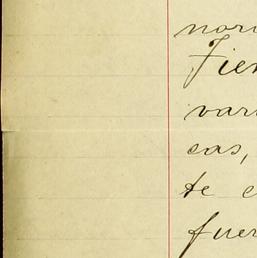 nor
Tien
vari
sas,
te c
fuer